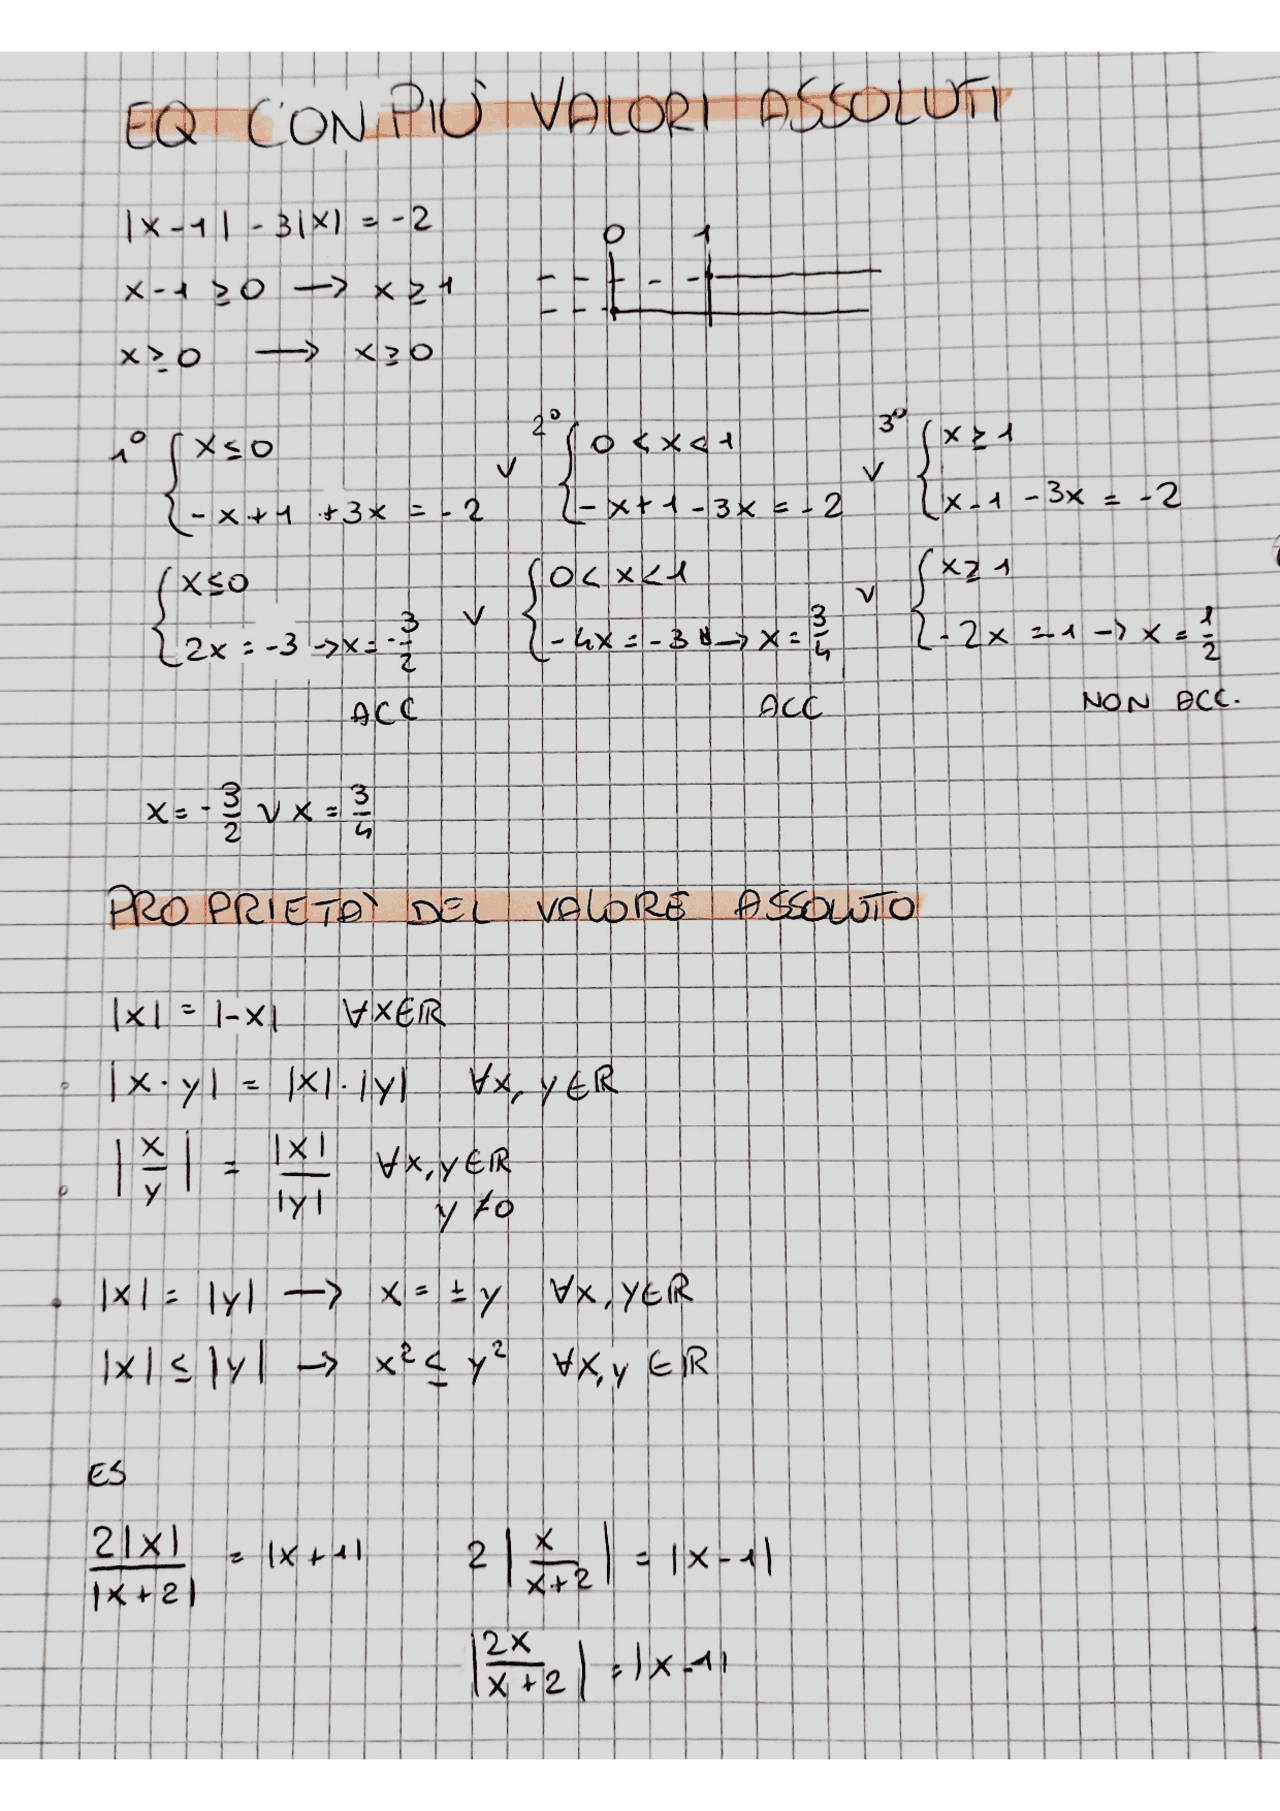 EQ CON PIÙ VALORI ASSOLUTI
|x-1| - 3|x| = -2
0 1
x-1 ≥ 0 → x ≥ 1
x ≥ 0 → x ≥ 0
1° { x ≤ 0 ∨ 2° { 0 < x < 1 ∨ 3° { x ≥ 1
-x+1 +3x = -2 -x+1-3x = -2 x-1 -3x = -2
{ x ≤ 0 ∨ { 0 < x < 1 ∨ { x ≥ 1
2x = -3 → x = -3/2 -4x = -3 → x = 3/4 -2x = -1 → x = 1/2
ACC ACC NON ACC.
x = -3/2 ∨ x = 3/4
PROPRIETÀ DEL VALORE ASSOLUTO
|x| = |-x| ∀x∈ℝ
|x·y| = |x|·|y| ∀x, y∈ℝ
|x/y| = |x|/|y| ∀x,y∈ℝ
y ≠ 0
|x| = |y| → x = ±y ∀x, y∈ℝ
|x| ≤ |y| → x² ≤ y² ∀x,y ∈ℝ
ES
2|x|/|x+2| = |x+1| 2|x/(x+2)| = |x-1|
|2x/(x+2)| = |x-1|